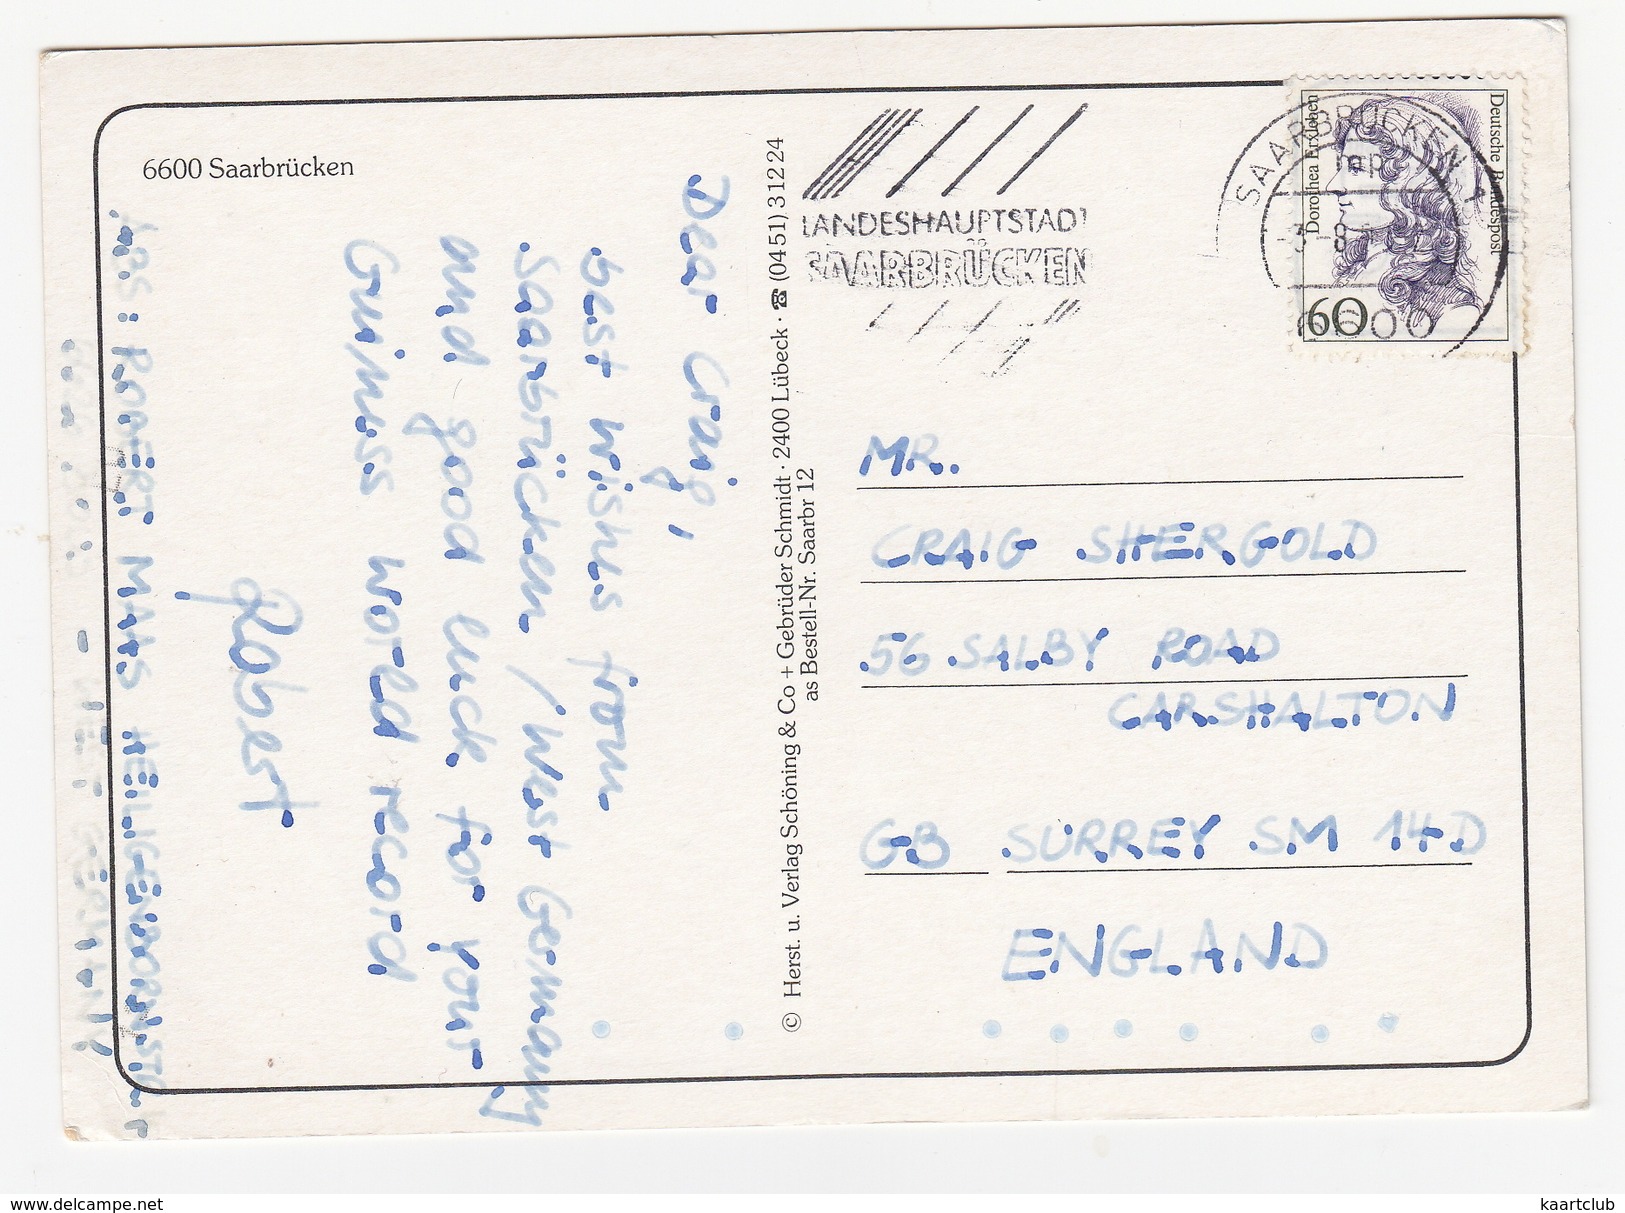 6600 Saarbrücken
Dear Craig,
best wishes from
Saarbrücken / West Germany
and good luck for your
Guiness world record
Robert
ABS: ROBERT MAAS HEILIGENBORNSTR
© Herst. u. Verlag Schöning & Co + Gebrüder Schmidt · 2400 Lübeck · ☎ (04 51) 3 12 24
as Bestell-Nr. Saarbr 12
LANDESHAUPTSTADT
SAARBRÜCKEN
SAARBRÜCKEN 1
mp
-8
6600
Deutsche Bundespost
Dorothea Erxleben
60
MR.
CRAIG SHERGOLD
56 SALBY ROAD
CARSHALTON
GB SURREY SM 14D
ENGLAND
kaartclub